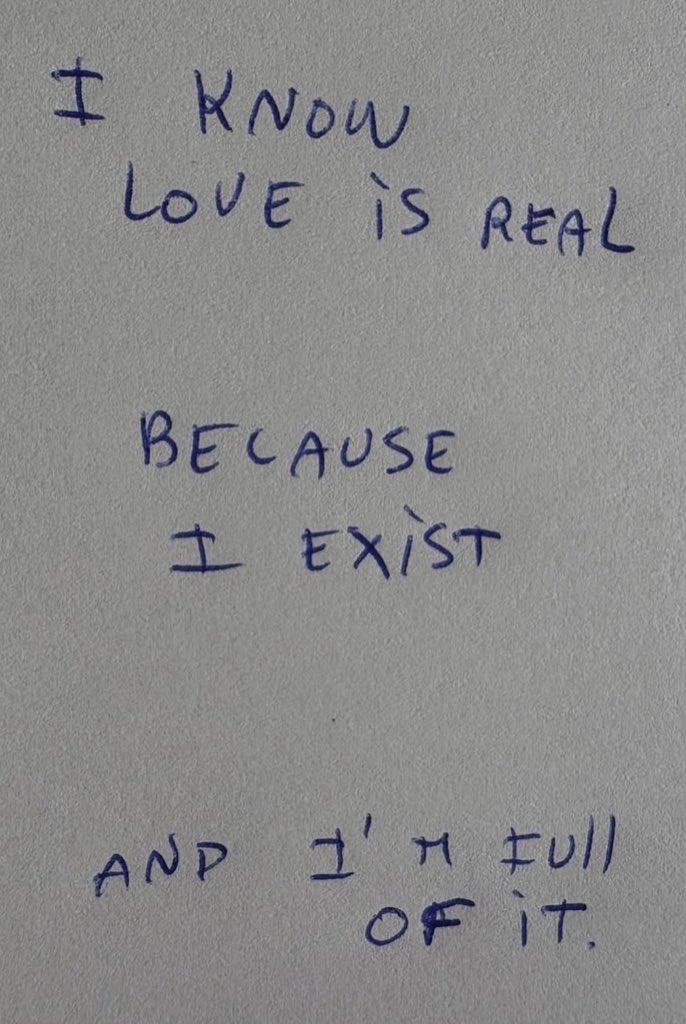 I KNOW
LOVE iS REAL
BECAUSE
I EXiST
AND I'M FUll
OF iT.